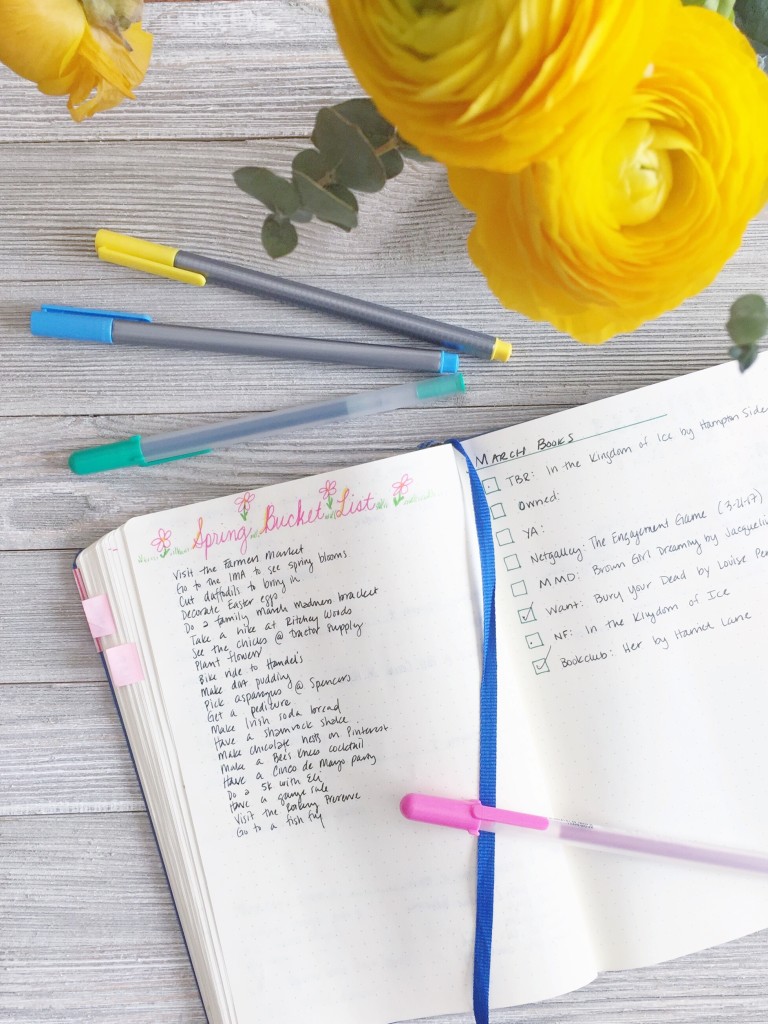 Spring Bucket List
Visit the Farmers Market
Go to the IMA to see spring blooms
Cut daffodils to bring in
Decorate Easter eggs
Do a family March Madness bracket
Take a hike at Ritchey Woods
See the chicks @ Tractor Supply
Plant flowers
Bike ride to Handel's
Make dirt pudding
Pick asparagus @ Spencers
Get a pedicure
Make Irish soda bread
Have a shamrock shake
Make chocolate nests on Pinterest
Make a Bee's Knees cocktail
Have a Cinco de Mayo party
Do a 5k with Eli
Have a garage sale
Visit the Eating
Go to a fish fry
March Books
TBR: In the Kingdom of Ice by Hampton Side
Owned:
YA:
Netgalley: The Engagement Game (3-21-17)
MMD: Brown Girl Dreaming by Jacqueli
Want: Bury Your Dead by Louise Pe
NF: In the Kingdom of Ice
Bookclub: Her by Harriet Lane